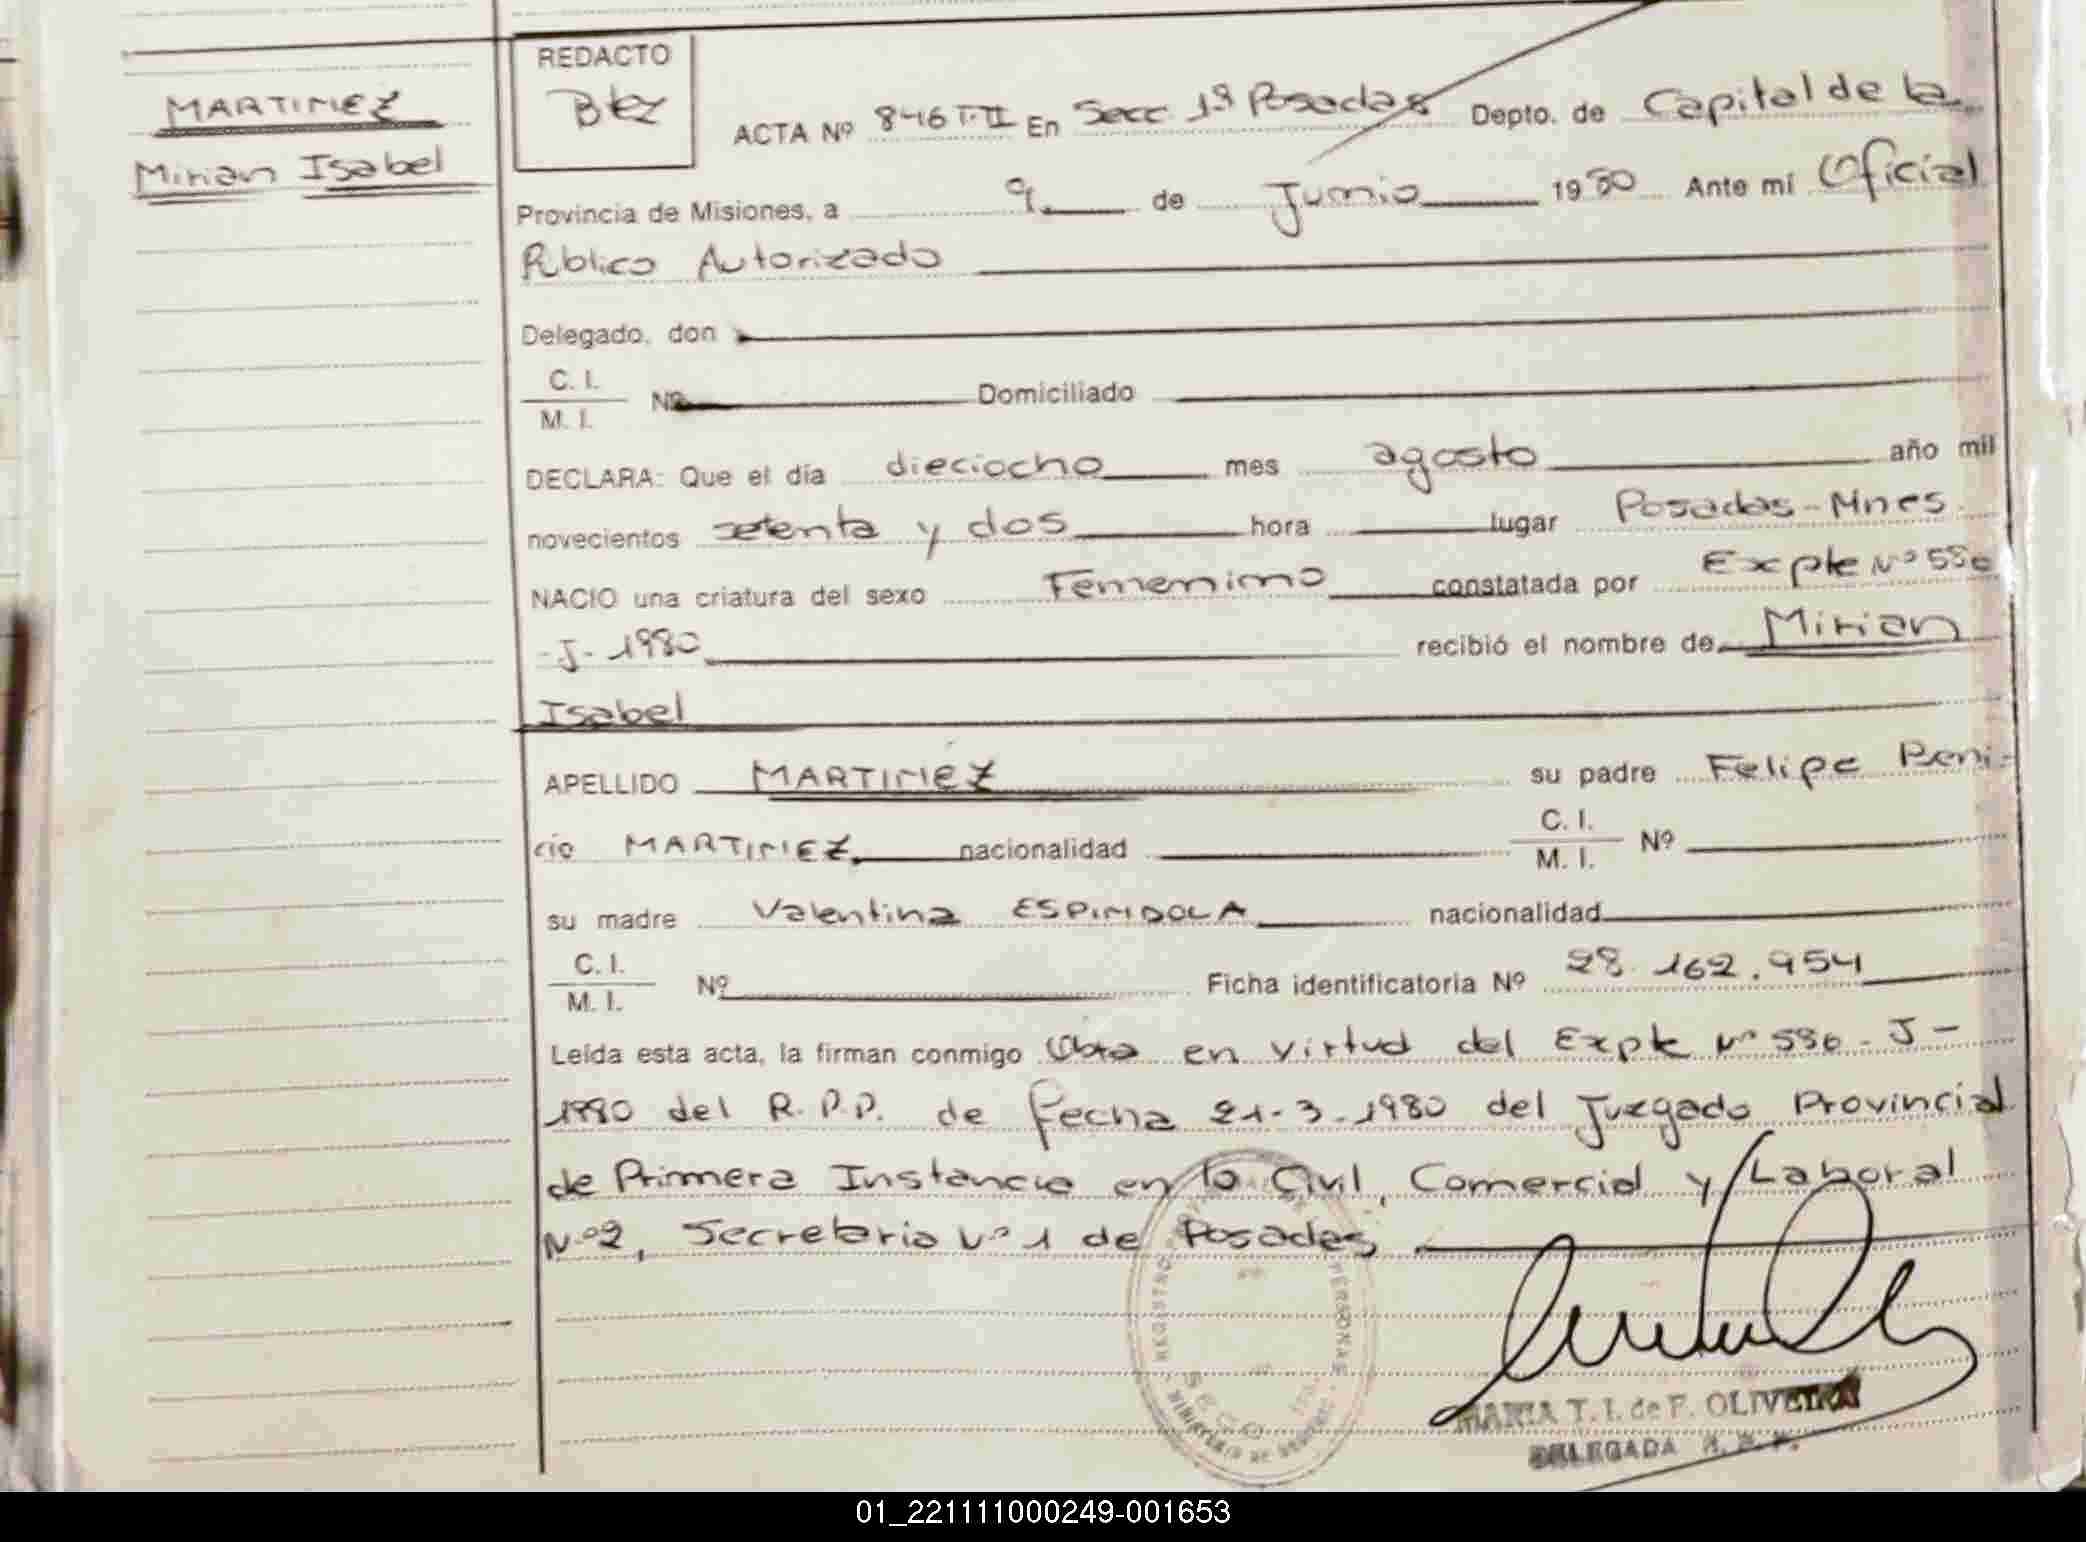 MARTINEZ
Mirian Isabel
REDACTO
ACTA Nº 846 T-II En Secc 1ª Posadas Depto. de Capital de la
Provincia de Misiones, a 9 de Junio 1980 Ante mí Oficial
Público Autorizado
Delegado, don
C. I.
M. I.
Nº Domiciliado
DECLARA: Que el día dieciocho mes agosto año mil
novecientos setenta y dos hora lugar Posadas-Mnes
NACIO una criatura del sexo Femenino constatada por Expte Nº 586
-J- 1980 recibió el nombre de Mirian
Isabel
APELLIDO MARTINEZ su padre Felipe Beni-
cio MARTINEZ nacionalidad C. I. M. I. Nº
su madre Valentina ESPINDOLA nacionalidad
C. I.
M. I.
Nº Ficha identificatoria Nº 28.162.954
Leída esta acta, la firman conmigo en virtud del Expte Nº 586 - J -
1980 del R.P.P. de fecha 21-3-1980 del Juzgado Provincial
de Primera Instancia en lo Civil, Comercial y Laboral
Nº2, Secretaria Nº1 de Posadas
MARIA T. I. de F. OLIVEIRA
DELEGADA R. P. P.
01_221111000249-001653